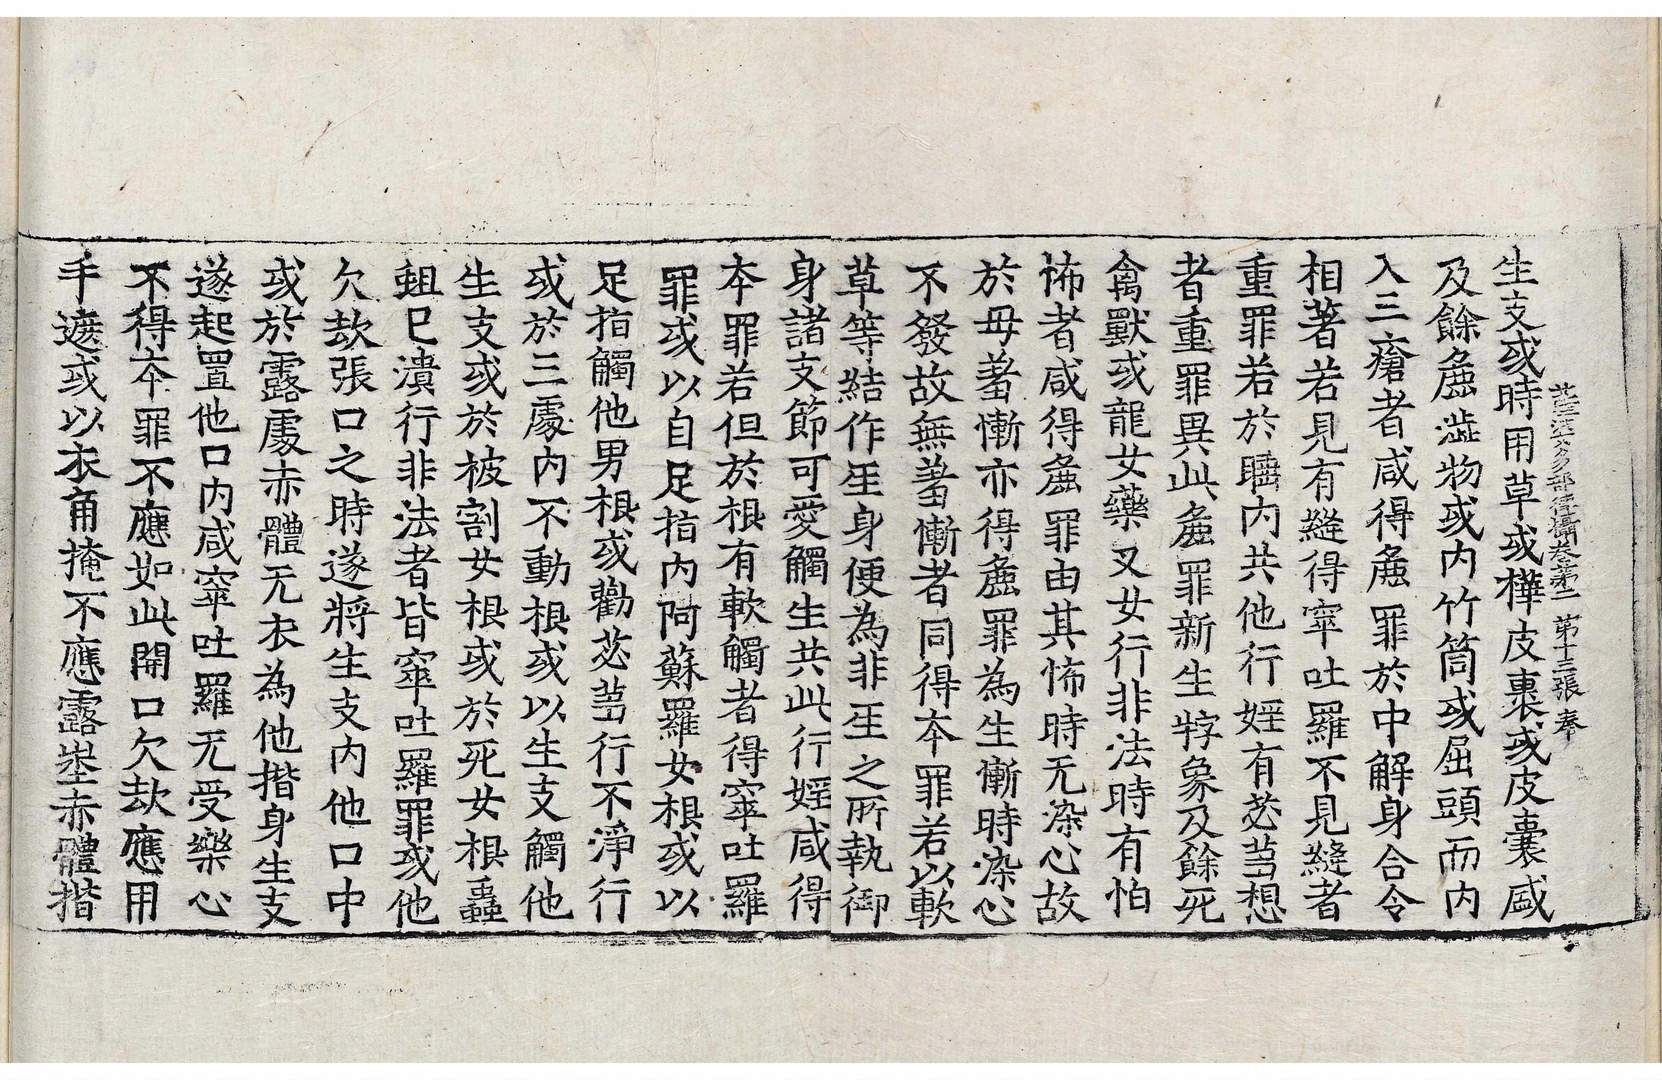 根本薩婆多部律攝卷第二　第十三張　奉
生支或時用草或樺皮裹或皮囊盛
及餘麁澁物或內竹筒或屈頭而內
入三瘡者咸得麁罪於中解身合令
相著若見有縫得窣吐羅不見縫者
重罪若於睡內共他行婬有苾芻想
者重罪異此麁罪新生牸象及餘死
禽獸或龍女藥叉女行非法時有怕
怖者咸得麁罪由其怖時无染心故
於母羞慚亦得麁罪為生慚時染心
不發故無羞慚者同得本罪若以軟
草等結作生身便為非生之所執御
身諸支節可愛觸生共此行婬咸得
本罪若但於根有軟觸者得窣吐羅
罪或以自足指內阿蘇羅女根或以
足指觸他男根或勸苾芻行不淨行
或於三處內不動根或以生支觸他
生支或於被割女根或於死女根蟲
蛆已潰行非法者皆窣吐羅罪或他
欠欬張口之時遂將生支內他口中
或於露處赤體无衣為他揩身生支
遂起置他口內咸窣吐羅无受樂心
不得本罪不應如此開口欠欬應用
手遮或以衣角掩不應露坐赤體揩